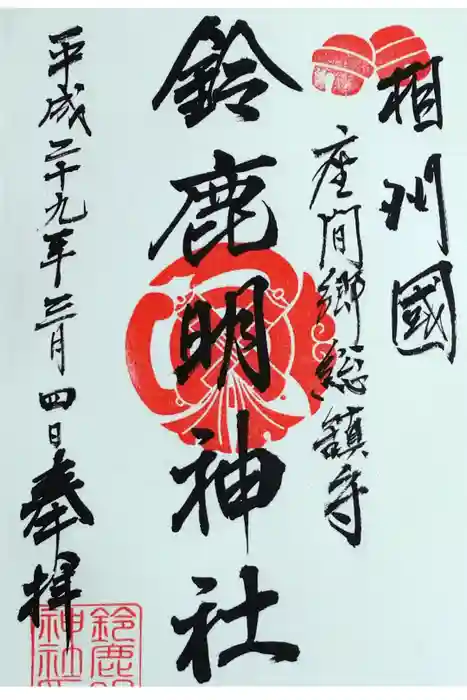 相州國
座間郷総鎮守
鈴鹿明神社
平成二十九年三月四日
奉拝
鈴鹿明
神社